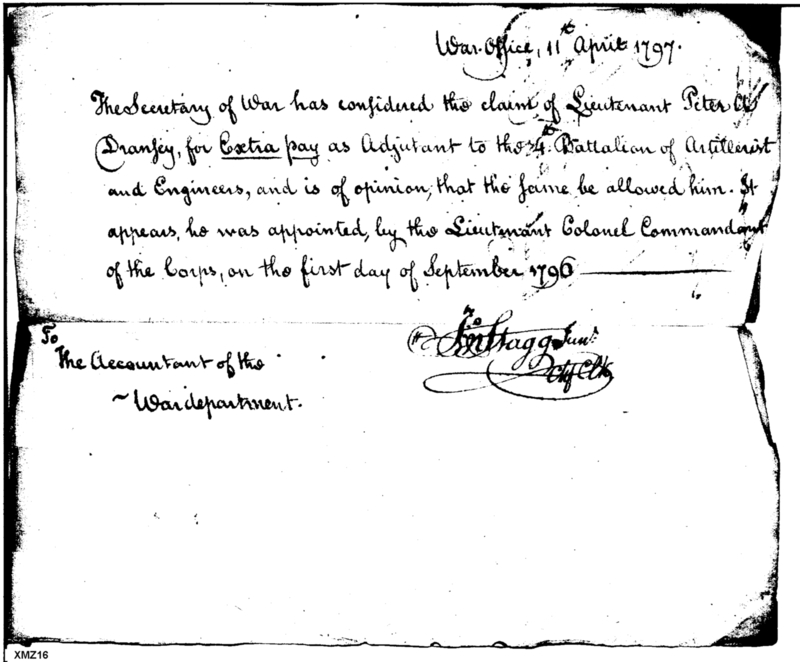 War Office, 11th April 1797.
The Secretary of War has considered the claim of Lieutenant Peter A
Dransey, for Extra pay as Adjutant to the 4th Battalion of Artillerist
and Engineers, and is of opinion, that the same be allowed him. It
appears, he was appointed, by the Lieutenant Colonel Commandant
of the Corps, on the first day of September 1796
Jno Stagg Junr
Chf Clk
To
The Accountant of the
War department.
XMZ16